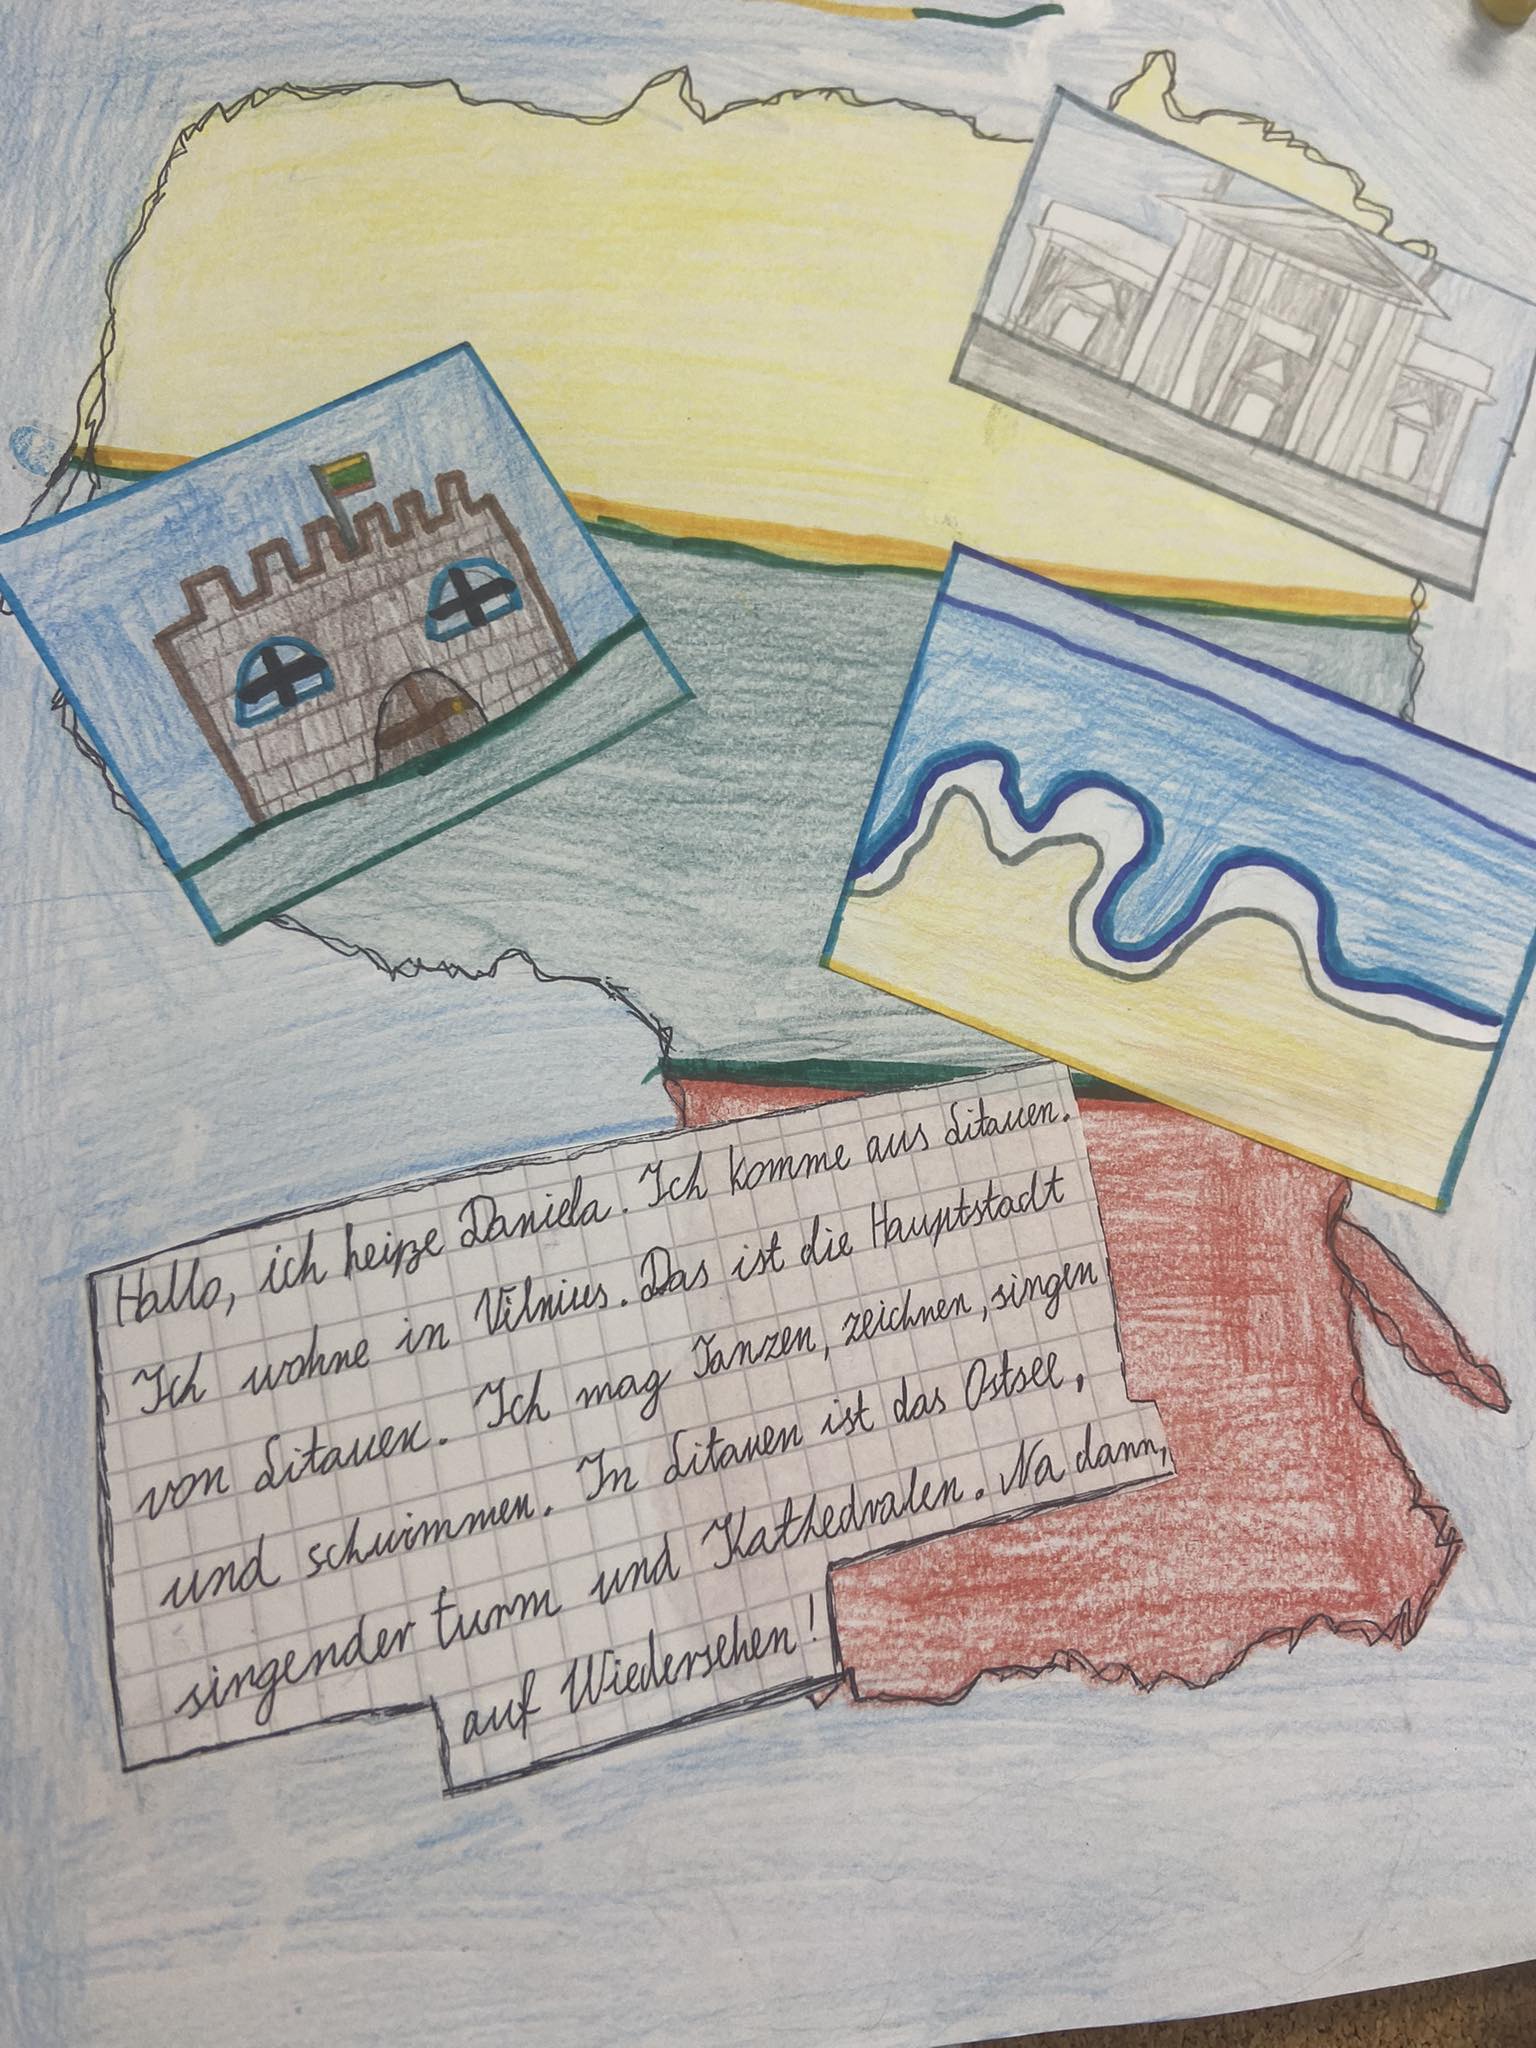 Hallo, ich heiße Daniela. Ich komme aus Litauen.
Ich wohne in Vilnius. Das ist die Hauptstadt
von Litauen. Ich mag Tanzen, zeichnen, singen
und schwimmen. In Litauen ist das Ostsee,
singender turm und Kathedralen. Na dann,
auf Wiedersehen!